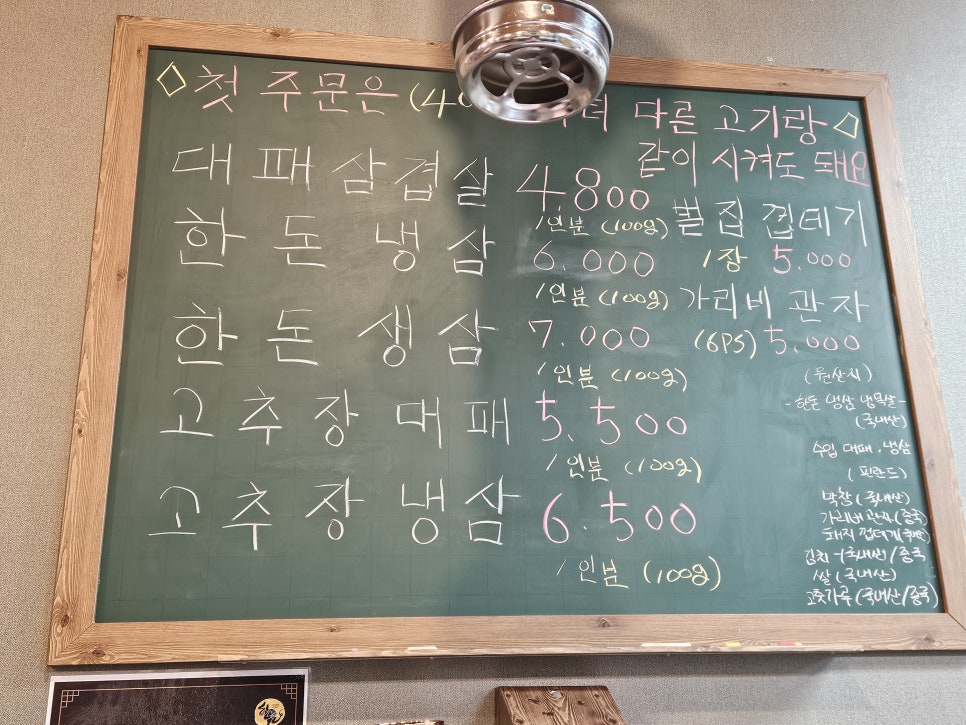 ◇첫 주문은 (4
다른 고기랑◇
같이 시켜도 돼요
대패삼겹살 4,800
1인분 (100g)
한돈냉삼 6.000
1인분 (100g)
한돈생삼 7.000
1인분 (100g)
고추장대패 5.500
1인분 (100g)
고추장냉삼 6.500
1인분 (100g)
벌집껍데기
1장 5.000
가리비관자
(6PS) 5.000
(원산지)
-한돈 냉삼 냉목살-
(국내산)
수입 대패, 냉삼
(핀란드)
막창 (국내산)
가리비관자(중국)
돼지껍데기
김치-국내산/중국
쌀(국내산)
고춧가루(국내산/중국)